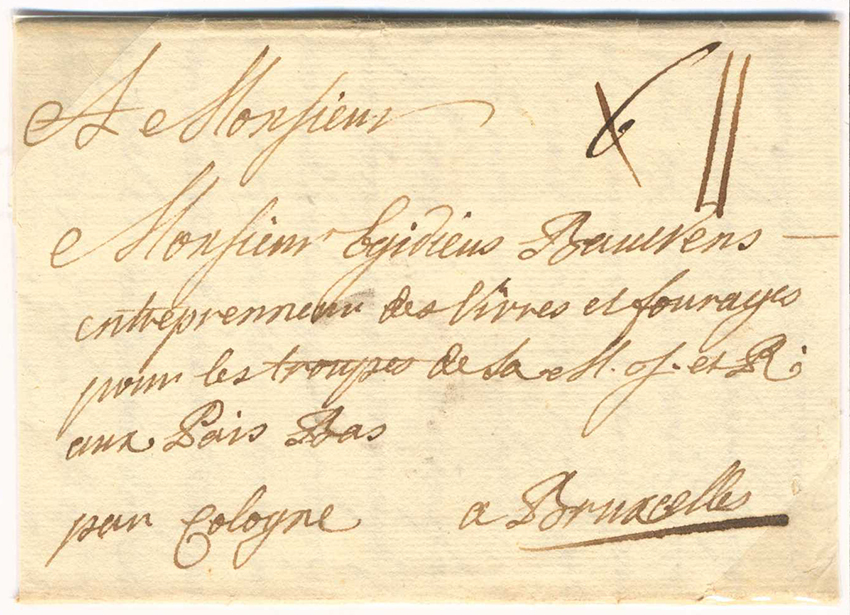 A Monsieur
Monsieur Egidieus Bauwens
entreprenneur des livres et fourages
pour les troupes de Sa M. J. et R.
aux Pais Bas
par Cologne a Bruxelles